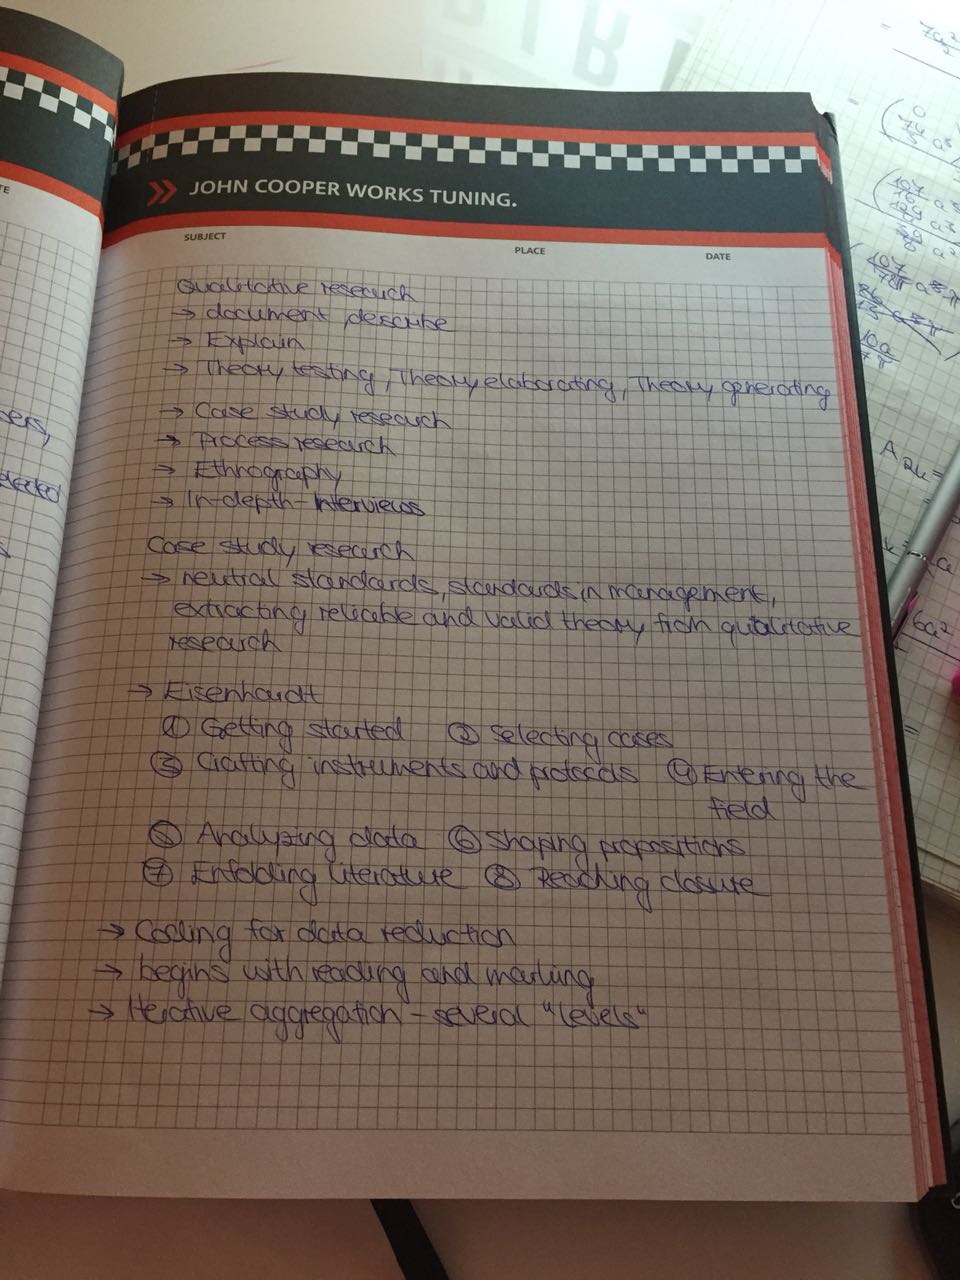 JOHN COOPER WORKS TUNING.
SUBJECT
PLACE
DATE
Qualitative research
→ document, describe
→ Explain
→ Theory testing, Theory elaborating, Theory generating
→ Case study research
→ Process research
→ Ethnography
→ In-depth-Interviews
Case study research
→ neutral standards, standards in management,
extracting reliable and valid theory from qualitative
research
→ Eisenhardt
① Getting started ② Selecting cases
③ Crafting instruments and protocols ④ Entering the
field
⑤ Analyzing data ⑥ Shaping propositions
⑦ Enfolding literature ⑧ Reaching closure
→ Coding for data reduction
→ begins with reading and marking
→ Iterative aggregation - several "levels"